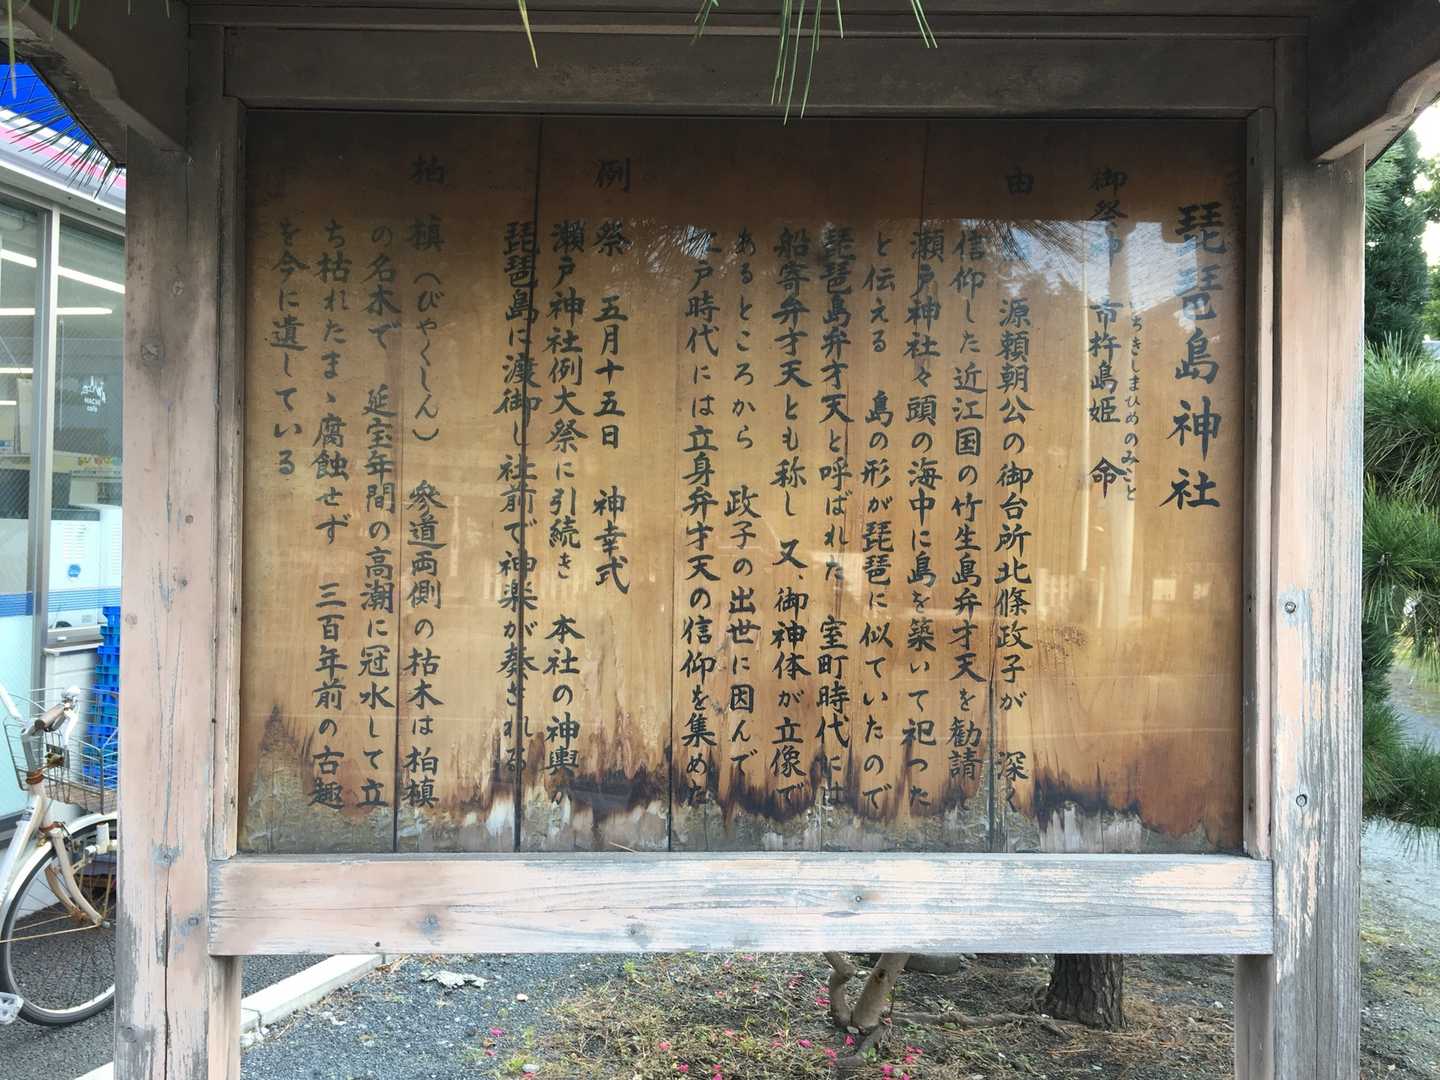 琵琶島神社
いちきしまひめのみこと
御祭神 市杵島姫 命
由 源頼朝公の御台所北條政子が 深く
信仰した近江国の竹生島弁才天を勧請
瀬戸神社々頭の海中に島を築いて祀った
と伝える 島の形が琵琶に似ていたので
琵琶島弁才天と呼ばれた 室町時代には
船寄弁才天とも称し 又、御神体が立像で
あるところから 政子の出世に因んで
江戸時代には立身弁才天の信仰を集めた
例 祭 五月十五日 神幸式
瀬戸神社例大祭に引続き 本社の神輿が
琵琶島に渡御し社前で神楽が奏される
柏 槙（びやくしん） 参道両側の枯木は柏槙
の名木で 延宝年間の高潮に冠水して立
ち枯れたまゝ腐蝕せず 三百年前の古趣
を今に遺している
MACHI
café